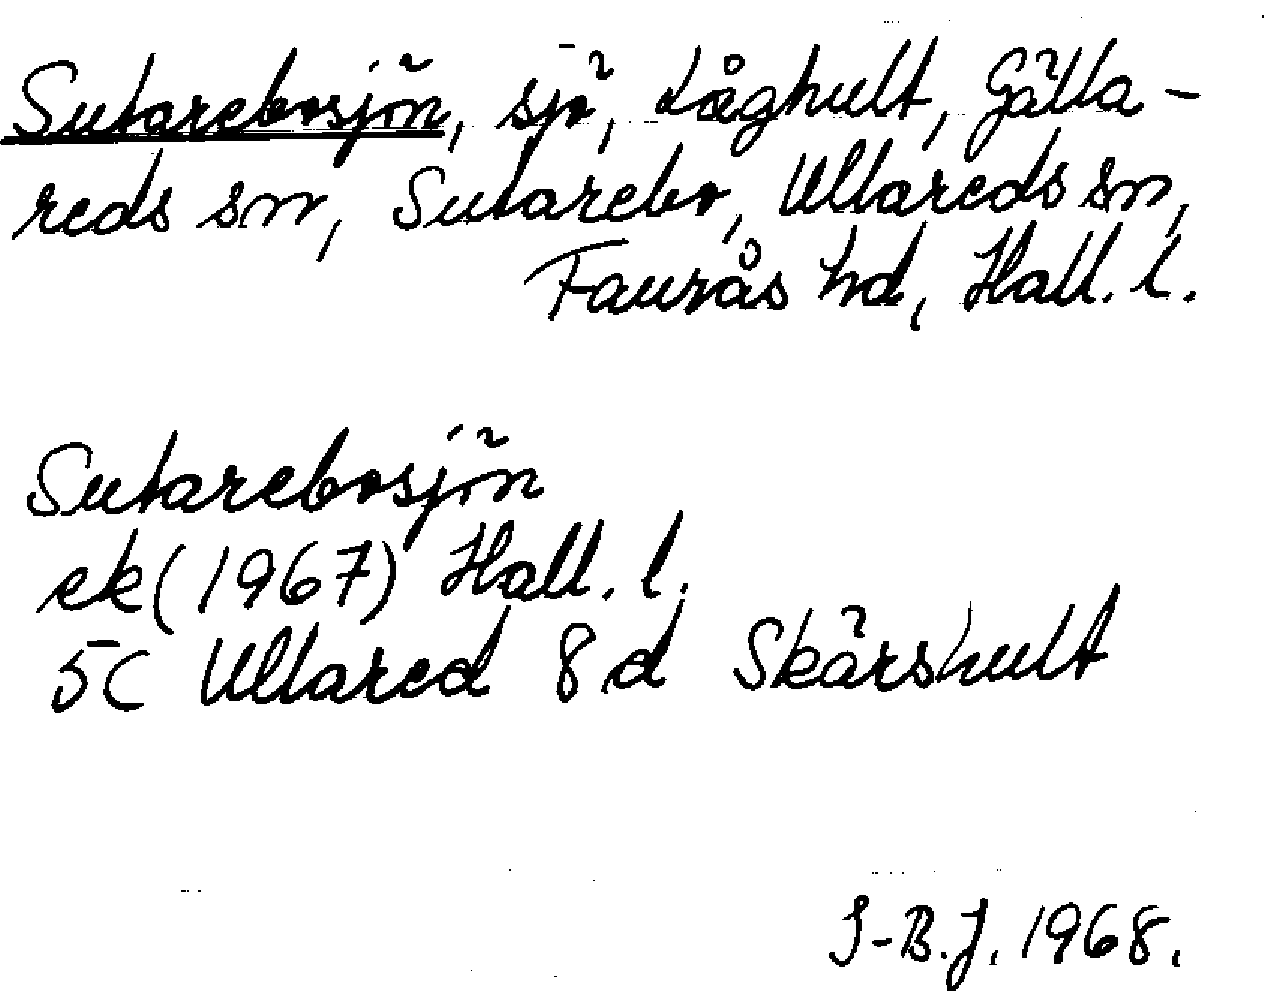 Sutarebosjön, sjö, Låghult, Gälla-
reds sn, Sutarebo, Ullareds sn,
Faurås hd, Hall. l.
Sutarebosjön
ek (1967) Hall. l.
5C Ullared 8d Skärshult
I-B.J. 1968.